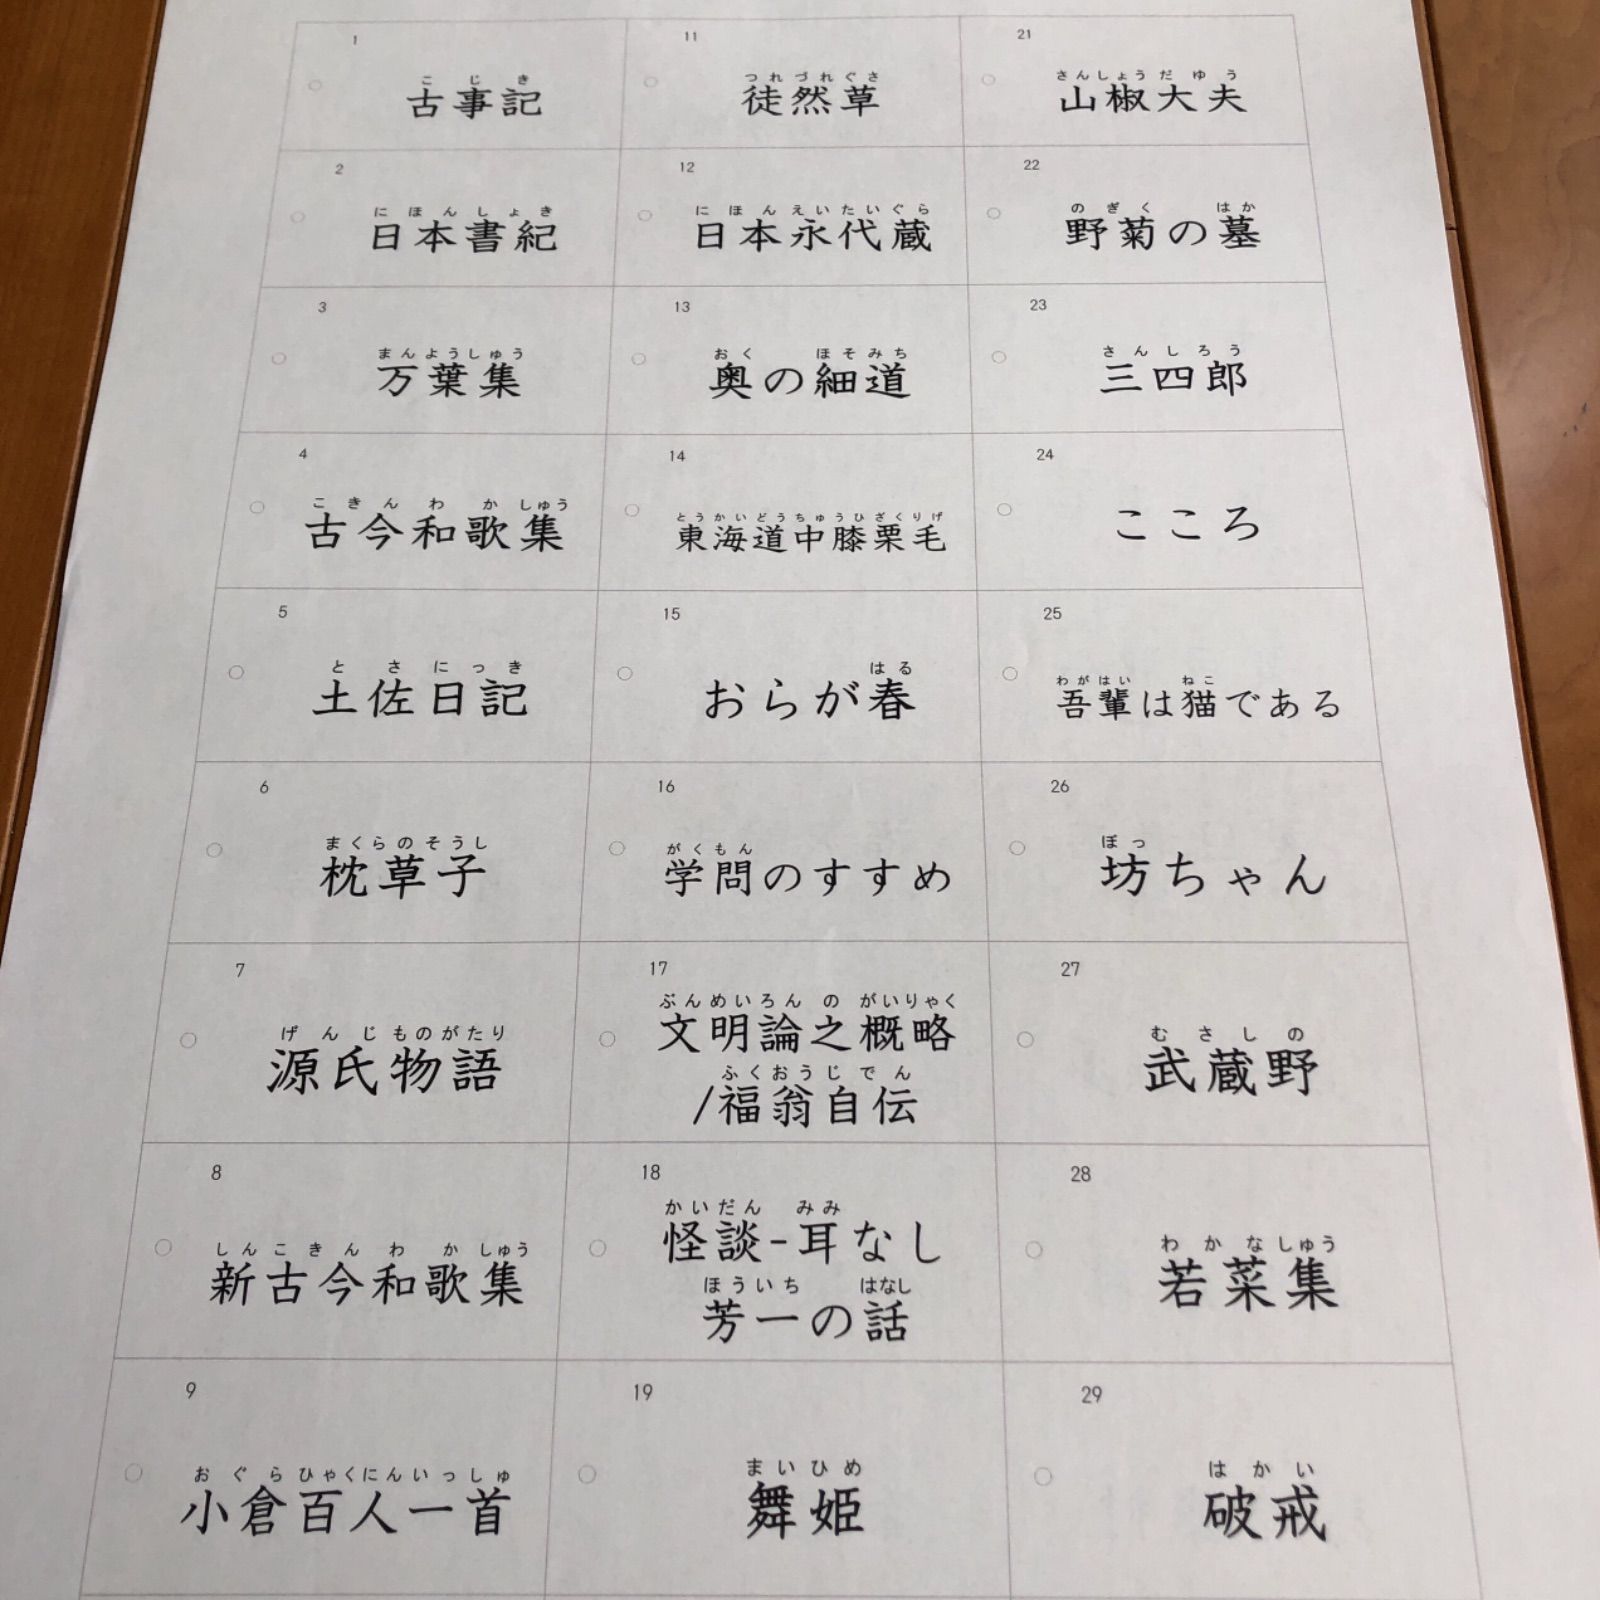 1
こじき
古事記
2
にほんしょき
日本書紀
3
まんようしゅう
万葉集
4
こきんわかしゅう
古今和歌集
5
とさにっき
土佐日記
6
まくらのそうし
枕草子
7
げんじものがたり
源氏物語
8
しんこきんわかしゅう
新古今和歌集
9
おぐらひゃくにんいっしゅ
小倉百人一首
11
つれづれぐさ
徒然草
12
にほんえいたいぐら
日本永代蔵
13
おく ほそみち
奥の細道
14
とうかいどうちゅうひざくりげ
東海道中膝栗毛
15
はる
おらが春
16
がくもん
学問のすすめ
17
ぶんめいろんのがいりゃく
文明論之概略
ふくおうじでん
/福翁自伝
18
かいだん みみ
怪談-耳なし
ほういち はなし
芳一の話
19
まいひめ
舞姫
21
さんしょうだゆう
山椒大夫
22
のぎく はか
野菊の墓
23
さんしろう
三四郎
24
こころ
25
わがはい ねこ
吾輩は猫である
26
ぼっ
坊ちゃん
27
むさしの
武蔵野
28
わかなしゅう
若菜集
29
はかい
破戒